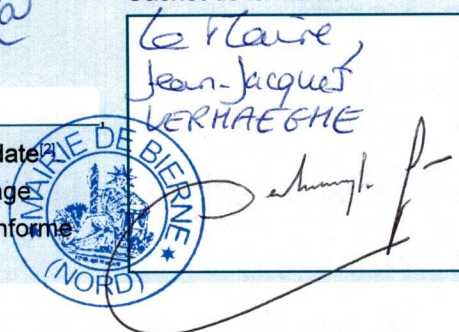 Le Maire,
Jean-Jacques
VERHAEGHE
date[2]
age
nforme
MAIRIE DE BIERNE
★ (NORD) ★